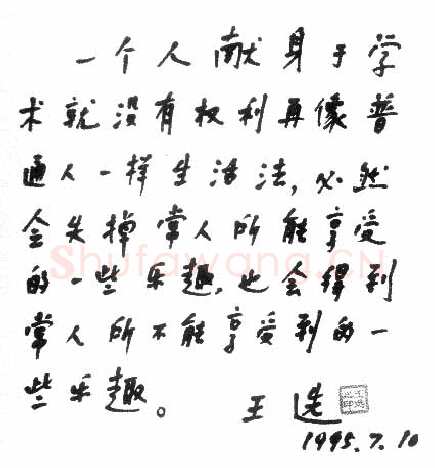 一个人献身于学
术就没有权利再像普
通人一样生活法，必然
会失掉常人所能享受
的一些乐趣，也会得到
常人所不能享受到的一
些乐趣。 王选
1995.7.10
Shufawang.CN